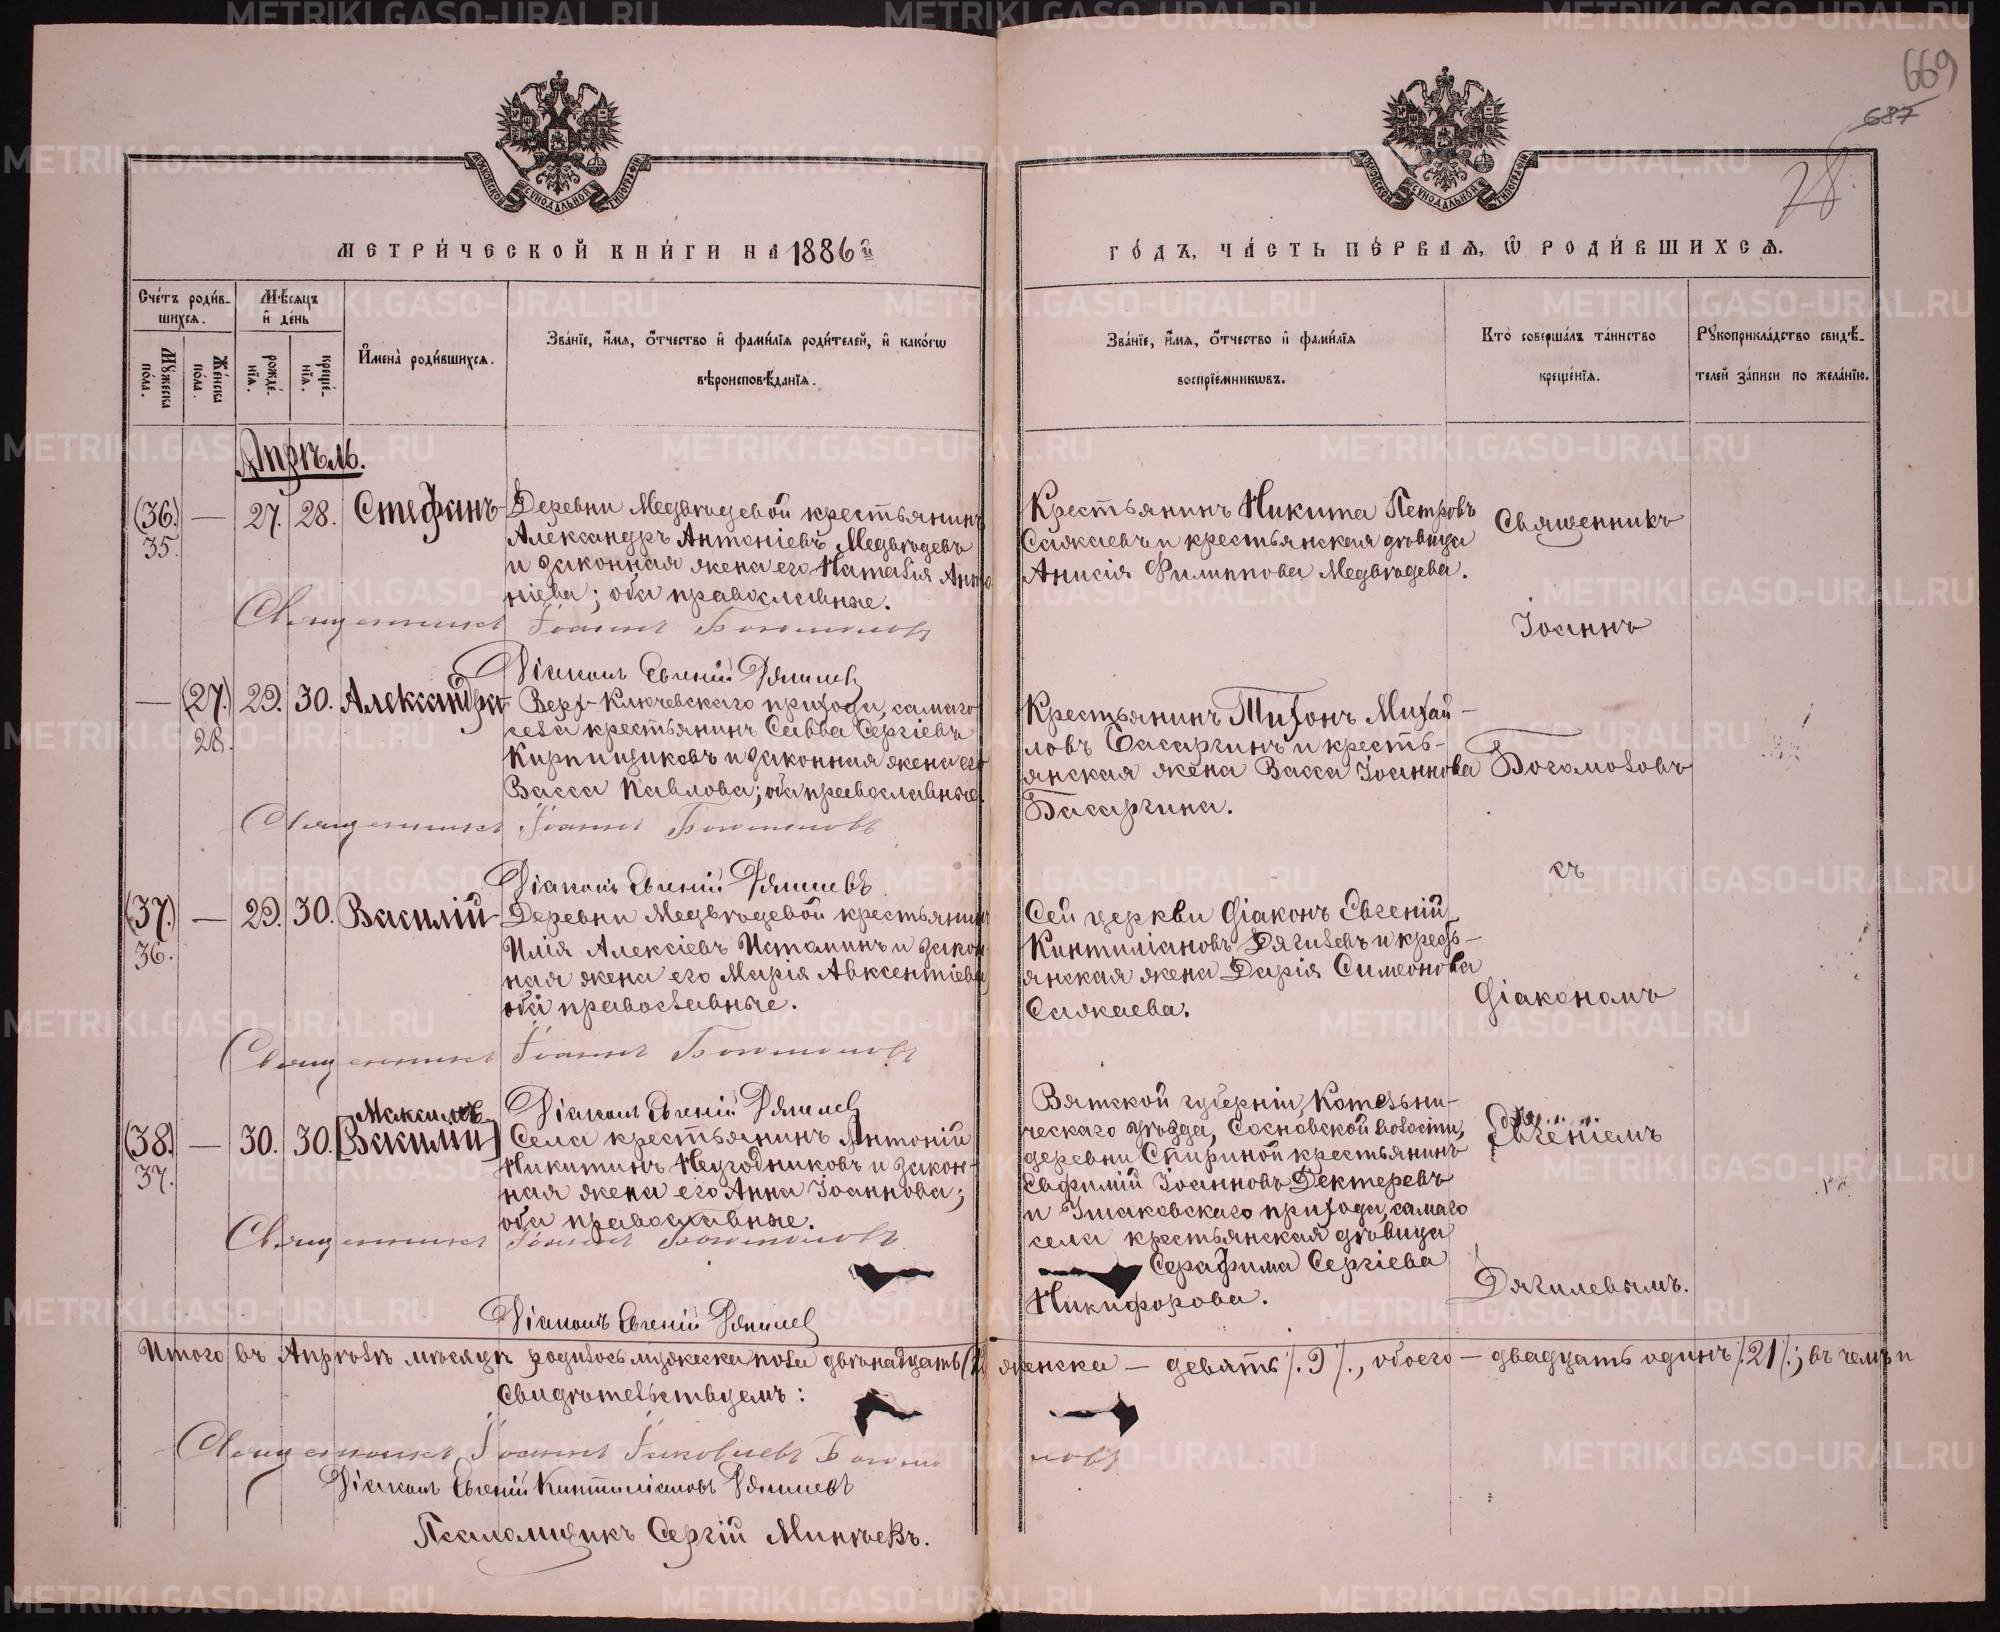 669
687
28
МЕТРИ́ЧЕСКОЙ КНИ́ГИ НА 1886й
ГО́ДЪ, ЧА́СТЬ ПЕ́РВАѦ, Ѿ РОДИ́ВШИХСѦ.
Сче́тъ роди́в-
шихсѧ.
Мѣ́сяцъ
и҆ де́нь
Мꙋжеска
по́ла.
Же́нска
по́ла.
рожде́-
нїѧ.
креще́-
нїѧ.
И҆мена̀ роди́вшихсѧ.
Зва́нїе, и҆́мѧ, ѻ҆́тчество и҆ фами́лїѧ роди́телей, и҆ како́гѡ
вѣроисповѣ́данїѧ.
Зва́нїе, и҆́мѧ, ѻ҆́тчество и҆ фами́лїѧ
воспрїе́мникѡвъ.
Кто̀ соверша́лъ та́инство
креще́нїѧ.
Рꙋкоприкла́дство свидѣ́-
телей за́писи по жела́нїю.
Апрѣль.
(36.) — 27. 28. Стефанъ
35.
Деревни Медвѣдевой крестьянинъ
Александръ Антоніевъ Медвѣдевъ
и законная жена его Наталія Анто
ніева; оба православные.
Священникъ Іоаннъ Богомоловъ
Діаконъ Евгеній Дягилевъ
Крестьянинъ Никита Петровъ
Сажаевъ и крестьянская дѣвица
Анисія Филиппова Медвѣдева.
Священникъ
Іоаннъ
— (27.) 29. 30. Александра
28.
Верх-Ключевскаго прихода, самаго
села крестьянинъ Савва Сергіевъ
Кирпищиковъ и законная жена его
Васса Павлова; оба православные.
Священникъ Іоаннъ Богомоловъ
Діаконъ Евгеній Дягилевъ
Крестьянинъ Тихонъ Михай-
ловъ Басаргинъ и кресть-
янская жена Васса Іоаннова
Басаргина.
Богомоловъ
съ
(37.) — 29. 30. Василій
36.
Деревни Медвѣдевой крестьянинъ
Илія Алексіевъ Истоминъ и закон
ная жена его Марія Авксентіева
оба православные.
Священникъ Іоаннъ Богомоловъ
Діаконъ Евгеній Дягилевъ
Сей церкви діаконъ Евгеній
Кинтиліановъ Дягилевъ и кресть-
янская жена Дарія Симеонова
Сажаева.
Діакономъ
Максимъ
(38.) — 30. 30. [Василій]
37.
Села крестьянинъ Антоній
Никитинъ Негодниковъ и закон-
ная жена его Анна Іоаннова;
оба православные.
Священникъ Іоаннъ Богомоловъ
Діаконъ Евгеній Дягилевъ
Вятской губерніи, Котельни-
ческаго уѣзда, Сосновской волости,
деревни Спириной крестьянинъ
Евфимій Іоанновъ Дектеревъ
и Ушаковскаго прихода, самаго
села крестьянская дѣвица
Серафима Сергіева
Никифорова.
Евгеніемъ
Дягилевымъ.
Итого въ Апрѣлѣ мѣсяцѣ родилось мужеска пола двѣнадцать женска — девять /.9/., обоего — двадцать одинъ /.21/.; въ чемъ и
свидѣтельствуемъ:
Священникъ Іоаннъ Іаковлевъ Богомоловъ
Діаконъ Евгеній Кинтиліановъ Дягилевъ
Псаломщикъ Сергій Минѣевъ.
METRIKI.GASO-URAL.RU